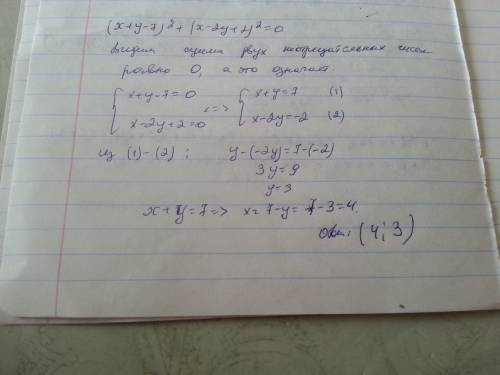 (x+y-7)² + (x-2y+2)² = 0
видим сумма двух неотрицательных чисел
равно 0, а это означает:
{ x+y-7=0 <=> { x+y=7 (1)
{ x-2y+2=0 { x-2y=-2 (2)
из (1)-(2); y-(-2y)=7-(-2)
3y=9
y=3
x+y=7 => x=7-y=7-3=4.
Отв: (4; 3)